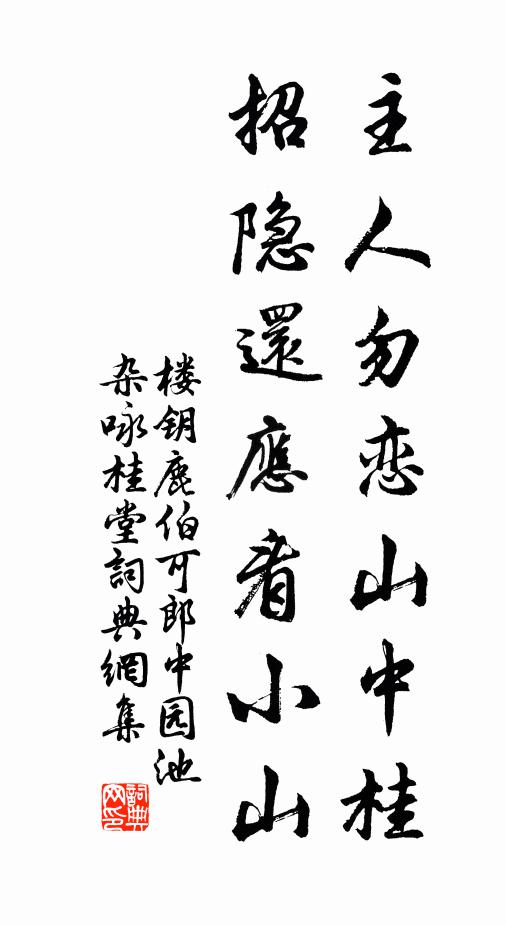 主人勿恋山中桂
招隐還應着小山
楼钥鹿伯可郎中园池
杂咏桂堂詞典網集
詞典网印